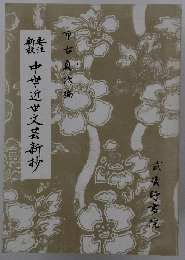 要注
新抄
中世近世文芸新抄
市古貞次編
武蔵野書院